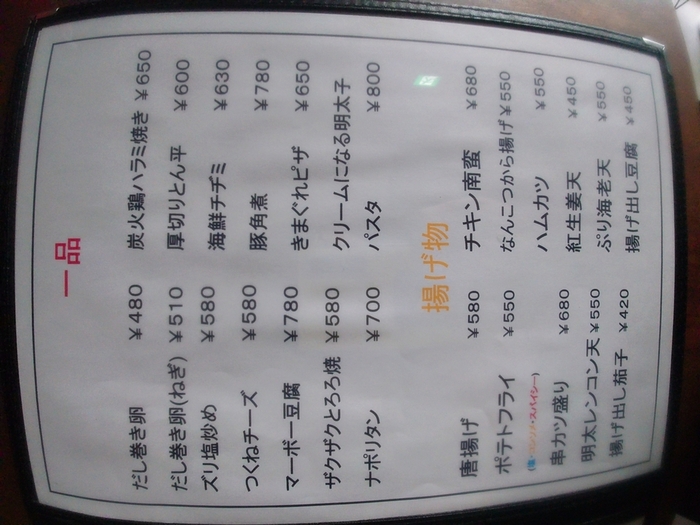 一品
だし巻き卵 ¥480 炭火鶏ハラミ焼き ¥650
だし巻き卵(ねぎ) ¥510 厚切りとん平 ¥600
ズリ塩炒め ¥580 海鮮チヂミ ¥630
つくねチーズ ¥580 豚角煮 ¥780
マーボー豆腐 ¥780 きまぐれピザ ¥650
ザクザクとろろ焼 ¥580 クリームになる明太子
ナポリタン ¥700 パスタ ¥800
揚げ物
唐揚げ ¥580 チキン南蛮 ¥680
ポテトフライ ¥550 なんこつから揚げ ¥550
・スパイシー)
串カツ盛り ¥680 ハムカツ ¥550
明太レンコン天 ¥550 紅生姜天 ¥450
揚げ出し茄子 ¥420 ぷり海老天 ¥550
揚げ出し豆腐 ¥450